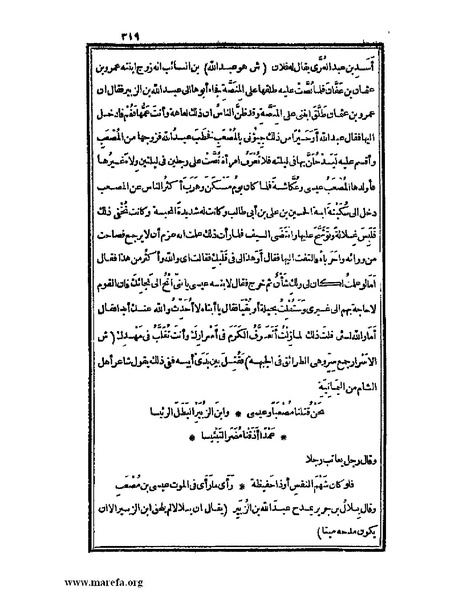 ٣١٩
أسد بن عبد العزى يقال لعقلان (ش هو عبد الله) بن السائب انه زوج ابنته عمرو بن
عثمان بن عفان فلما نصت عليه طلقها على المنصة فجاء أبوها الى عبد الله بن الزبير فقال ان
عمرو بن عثمان طلق ابنتى على المنصة وقد ظن الناس ان ذلك لعاهة وأنت عمها فقم فادخل
اليها فقال عبد الله أو خير من ذلك جيئونى بالمصعب فخطب عبد الله فزوجها من المصعب
وأقسم عليه ليدخلن بها فى ليلته فلا تعرف امرأة نصت على رجلين فى ليلتين ولاء غيرها
فأولدها المصعب عيسى وعكاشة فلما كان يوم مسكن وهرب أكثر الناس عن المصعب
دخل الى سكينة ابنة الحسين بن على بن أبى طالب وكانت له شديدة المحبة وكانت تخفى ذلك
فلبس غلالة وتوشح عليها وانتضى السيف فلما رأت ذلك علمت انه عزم أن لا يرجع فصاحت
من ورائه واحرباه فالتفت اليها فقال أو هذا لى فى قلبك فقالت اى والله وأكثر من هذا فقال
أما لو علمت لكان لى ولك شأن ثم خرج فقال لابنه عيسى يا بنى انج الى نجائك فان القوم
لا حاجة بهم الى غيرى وستفلت بحيلة أو بقيا فقال يا أبتاه لا أحدث والله عنك أبدا فقال
أما والله لئن قلت ذلك لما زلت أتعرف الكرم فى أسرارك وأنت تقلب فى مهدك (ش
الاسرار جمع سر وهى الطرائق فى الجبهة) فقتل بين يدى أبيه ففى ذلك يقول شاعر أهل
الشام من اليمانية
نحن قتلنا مصعبا وعيسى * وابن الزبير البطل الرئيسا
* عمدا أذقنا مضر التبئيسا *
وقال رجل يعاتب رجلا
فلو كان شهم النفس أو ذا حفيظة * رأى ما رأى فى الموت عيسى بن مصعب
وقال بلال بن جرير يمدح عبد الله بن الزبير (يقال ان بلالا لم يلحق ابن الزبير الا ان
يكون مدحه ميتا)
www.marefa.org